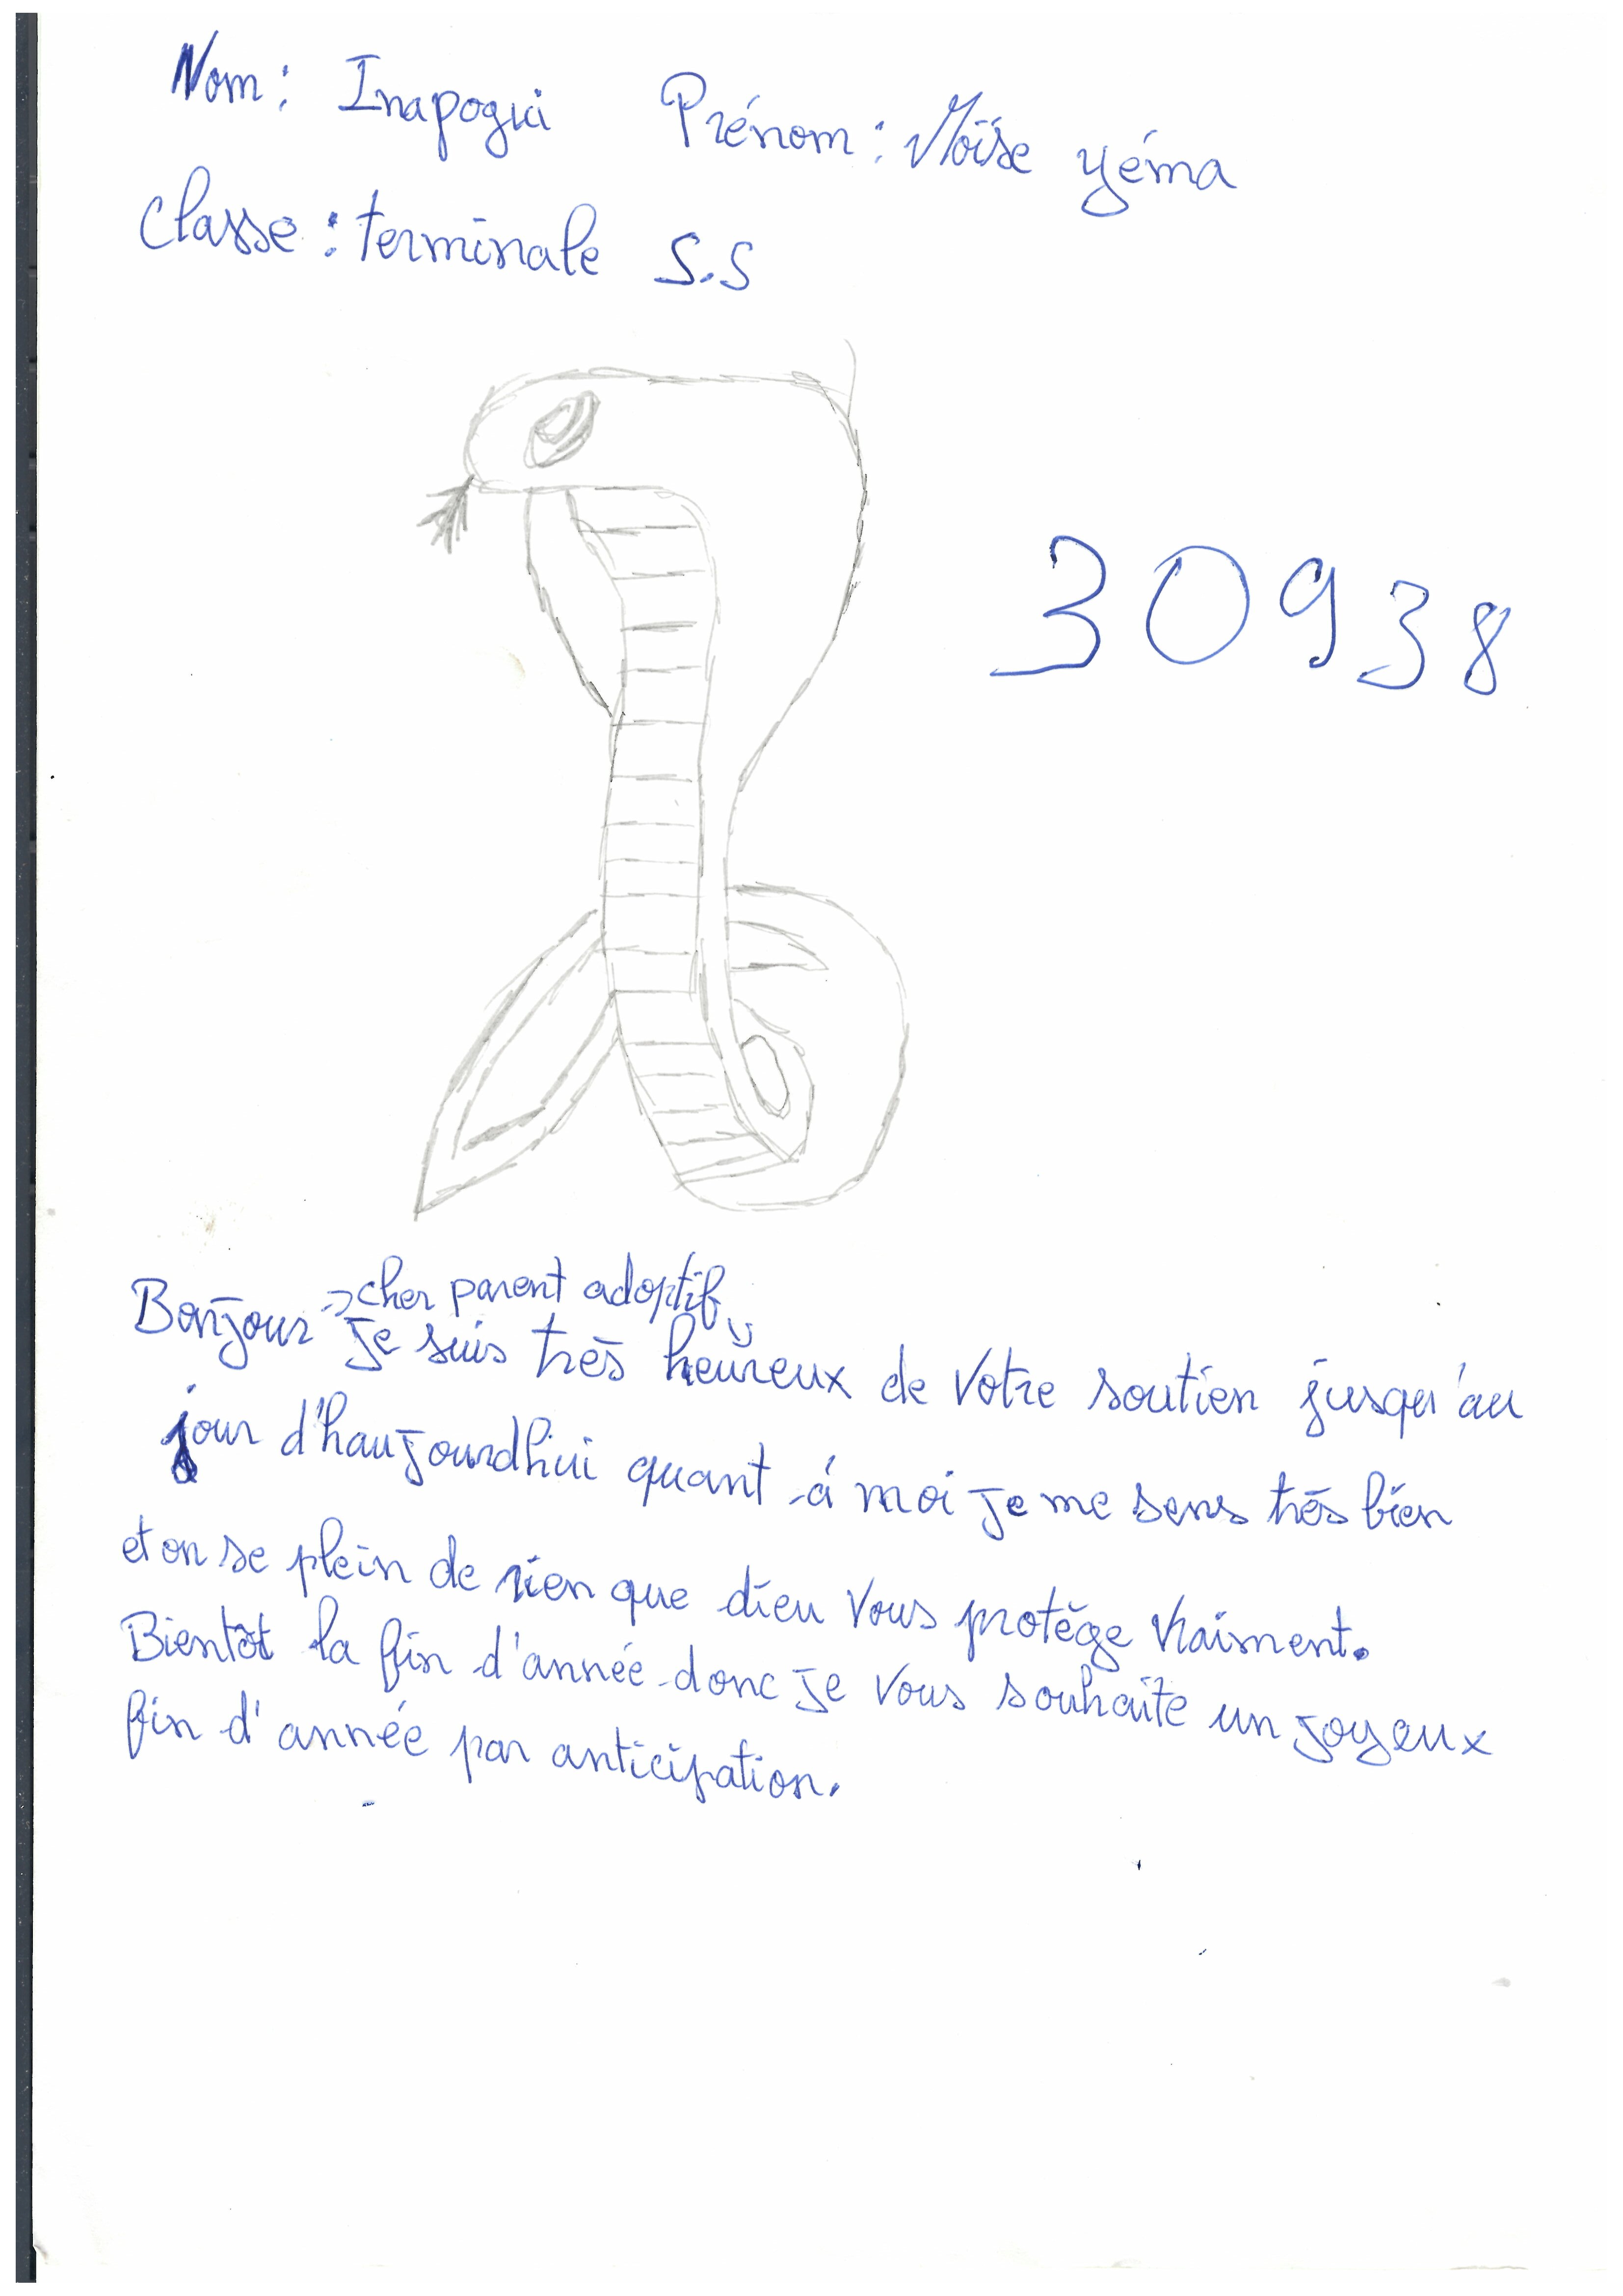 Nom: Inapogui Prénom: Moïse yéma
Classe: terminale S.S
30938
Bonjour cher parent adoptif
Je suis très heureux de votre soutien jusqu'au
jour d'haujourdhui quant à moi je me sens très bien
et on se plein de rien que dieu vous protège vraiment.
Bientôt la fin d'année donc je vous souhaite un joyeux
fin d'année par anticipation.